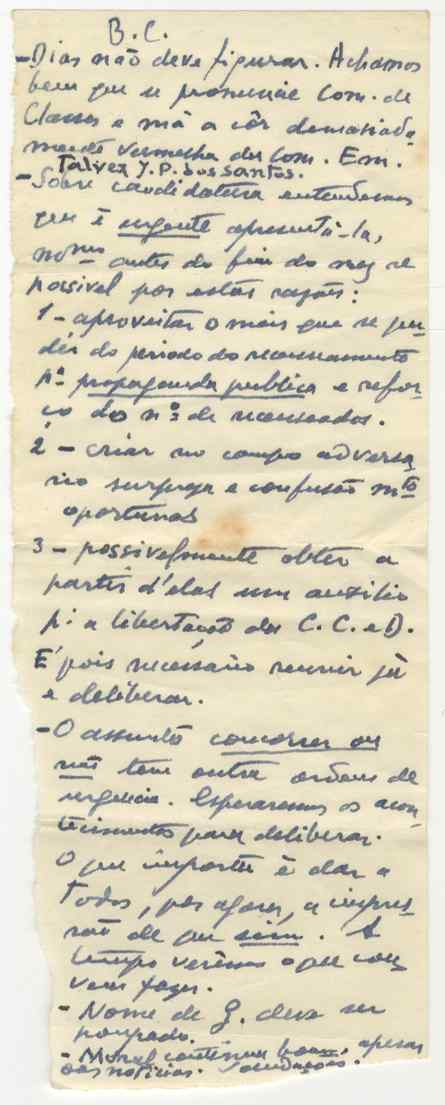 B.C.
- Dias não deve figurar. Achamos
bem que se pronuncie Com. de
Classes e má a côr demasiada-
mente vermelha das Com. Em.
Talvez J.P. dos Santos.
- Sobre candidatura entendemos
que é urgente apresentá-la,
mesmo antes do fim do mez se
possivel por estas razões:
1 - aproveitar o mais que se pu-
der do periodo do recenseamento
pª propaganda publica e refor-
ço do nº de recenseados.
2 - criar no campo adversa-
rio surpreza e confusão mto
oportunas
3 - possivelmente obter a
partir d'elas um auxilio
p: a libertação dos C. C. e D.
É pois necessário reunir já
e deliberar.
- O assunto concorrer ou
não tem outra ordem de
urgencia. Esperaremos os acon-
tecimentos para deliberar.
O que importa é dar a
todos, por agora, a impres-
são de que sim. A
tempo verêmos o que con-
vem fazer.
- Nome de G. deve ser
poupado.
- Moral continua boa, apesar
das noticias. Saudações.